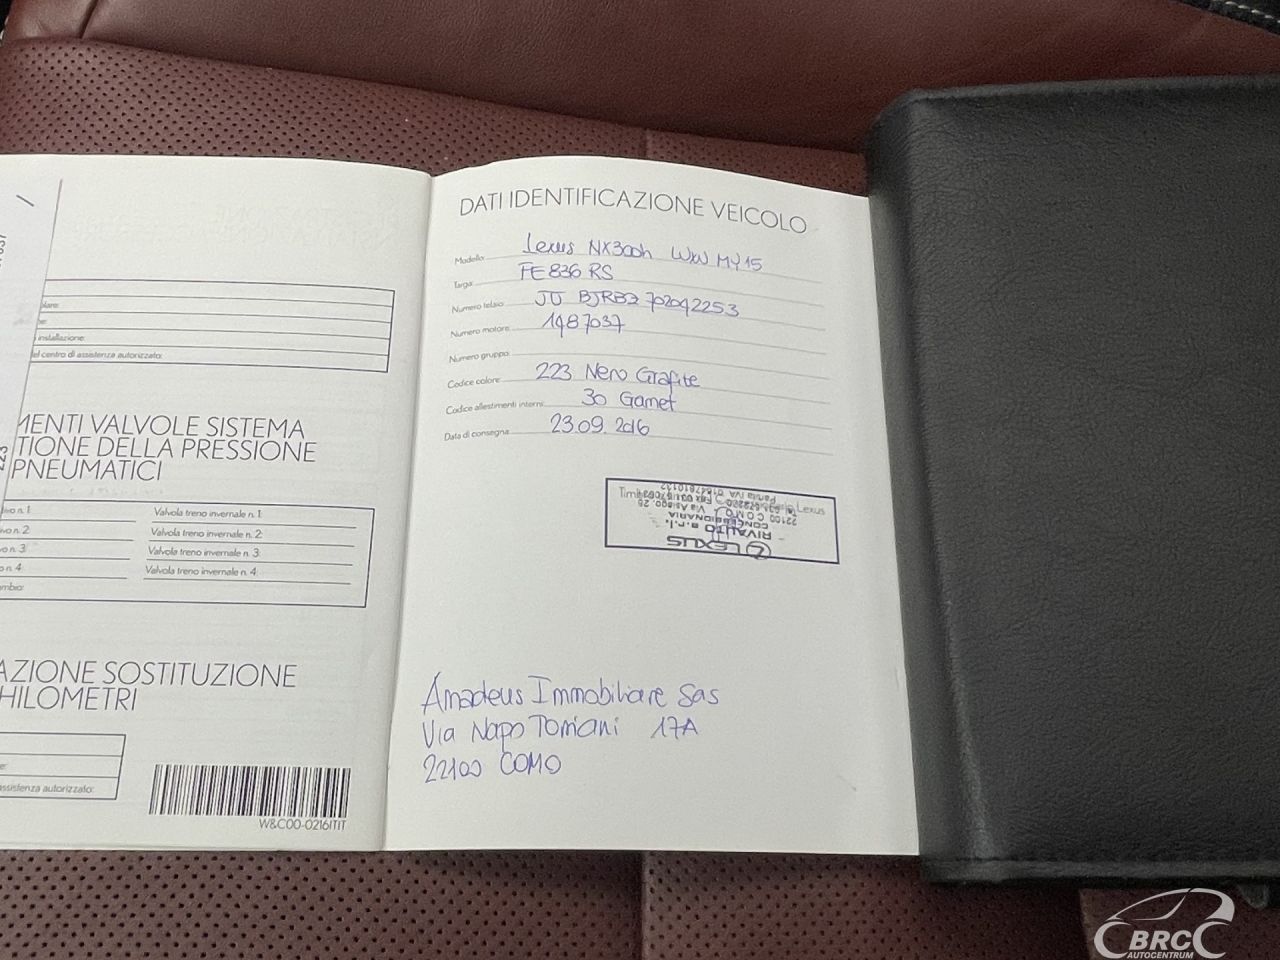 037
olare:
installazione:
el centro di assistenza autorizzato:
MENTI VALVOLE SISTEMA
TIONE DELLA PRESSIONE
PNEUMATICI
223
ivo n. 1:
Valvola treno invernale n. 1:
vo n. 2:
Valvola treno invernale n. 2:
o n. 3:
Valvola treno invernale n. 3:
o n. 4:
Valvola treno invernale n. 4:
mbio:
AZIONE SOSTITUZIONE
HILOMETRI
assistenza autorizzato:
W&C00-0216ITIT
DATI IDENTIFICAZIONE VEICOLO
Modello: Lexus NX300h WxW MY15
Targa: FE 836 RS
Numero telaio: JTJ BJRBZ 702042253
Numero motore: 1487037
Numero gruppo:
Codice colore: 223 Nero Grafite
Codice allestimenti interni: 30 Garnet
Data di consegna: 23.09.2016
LEXUS
RIVAUTO s.r.l.
CONCESSIONARIA
Via Asiago, 26
22100 COMO
Partita IVA
Lexus
Amadeus Immobiliare Sas
Via Napo Torriani 17A
22100 COMO
BRC
AUTOCENTRUM